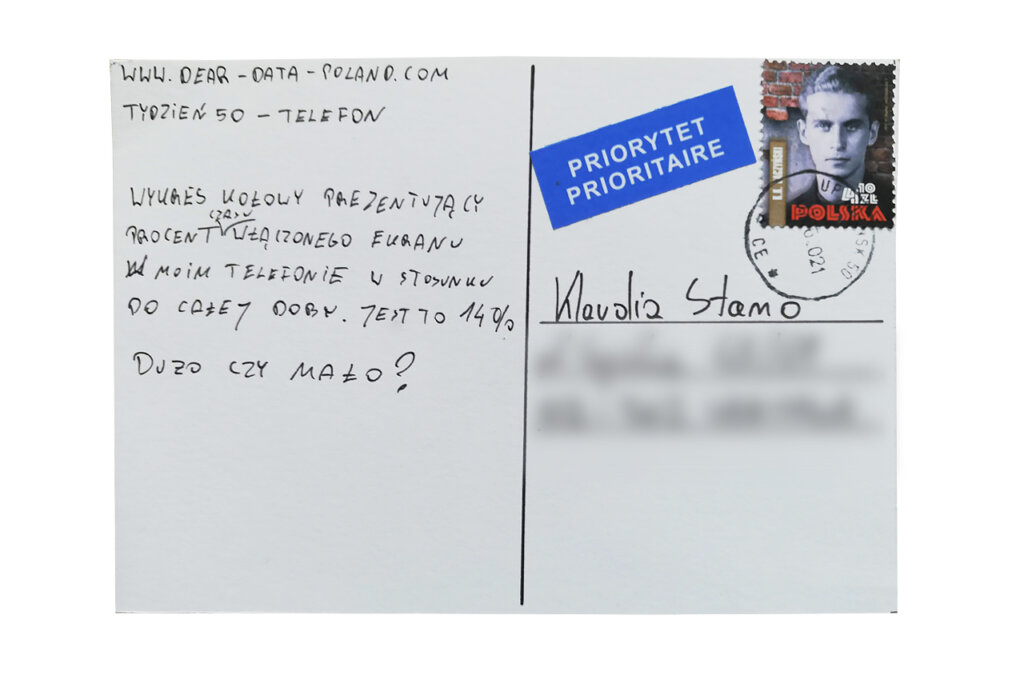 WWW.DEAR-DATA-POLAND.COM
TYDZIEŃ 50 - TELEFON
WYKRES KOŁOWY PREZENTUJĄCY
CZASU
PROCENT WŁĄCZONEGO EKRANU
W MOIM TELEFONIE W STOSUNKU
DO CAŁEJ DOBY. JEST TO 14%
DUZO CZY MAŁO?
PRIORYTET
PRIORITAIRE
POLSKA
Klaudia Stamo